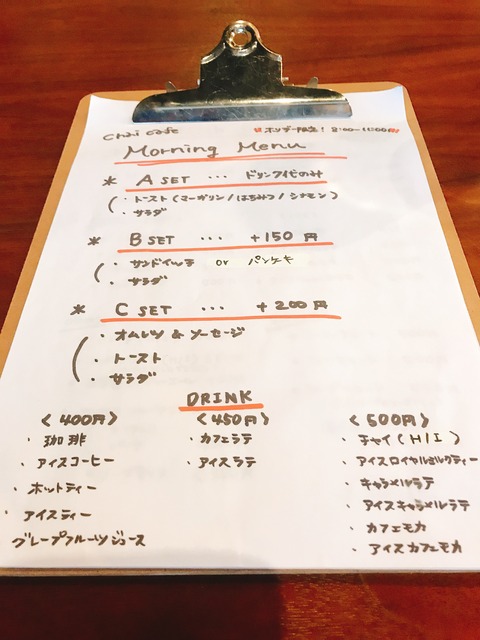 Chai Cafe
オンデー限定! 8:00-11:00
Morning Menu
* A SET ... ドリンク代のみ
・トースト(マーガリン/はちみつ/シナモン)
・サラダ
* B SET ... +150円
・サンドイッチ or パンケーキ
・サラダ
* C SET ... +200円
・オムレツ & ソーセージ
・トースト
・サラダ
DRINK
<400円> <450円> <500円>
・珈琲 ・カフェラテ ・チャイ(H/I)
・アイスコーヒー ・アイスラテ ・アイスロイヤルミルクティー
・ホットティー ・キャラメルラテ
・アイスティー ・アイスキャラメルラテ
グレープフルーツジュース ・カフェモカ
・アイスカフェモカ